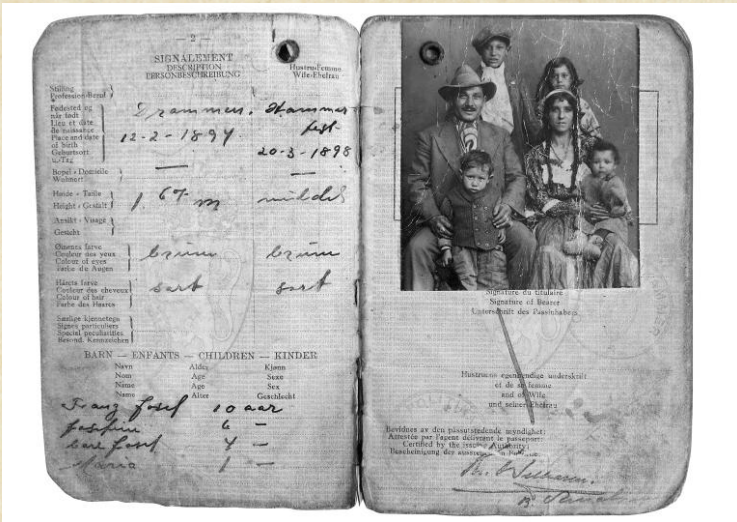 — 2 —
SIGNALEMENT
DESCRIPTION
PERSONBESCHREIBUNG
Hustru-Femme
Wife-Ehefrau
Stilling
Profession-Beruf
Fødested og
når født
Lieu et date
de naissance
Place and date
of birth
Geburtsort
u. Tag
Drammen. Hammer-
fest
12-2-1897
20-3-1898
Bopel - Domicile
Wohnort
— —
Høide - Taille
Height - Gestalt
1.67 m middel
Ansikt - Visage
Gesicht
Øinenes farve
Couleur des yeux
Colour of eyes
Farbe de Augen
brune brune
Hårets farve
Couleur des cheveux
Colour of hair
Farbe des Haares
sort sort
Særlige kjennetegn
Signes particuliers
Special peculiarities
Besond. Kennzeichen
BARN — ENFANTS — CHILDREN — KINDER
Navn Alder Kjønn
Nom Age Sexe
Name Age Sex
Name Alter Geschlecht
Franz Josef 10 aar
Josefine 6 —
Karl Josef 4 —
Maria 1 —
Signature du titulaire
Signature of Bearer
Unterschrift des Passinhabers
Hustruens egenhendige underskrift
et de sa femme
and of Wife
und seiner Ehefrau
Bevidnes av den passutstedende myndighet:
Attestée par l'agent délivrant le passeport:
Certified by the issuing Authority:
Bescheinigung des